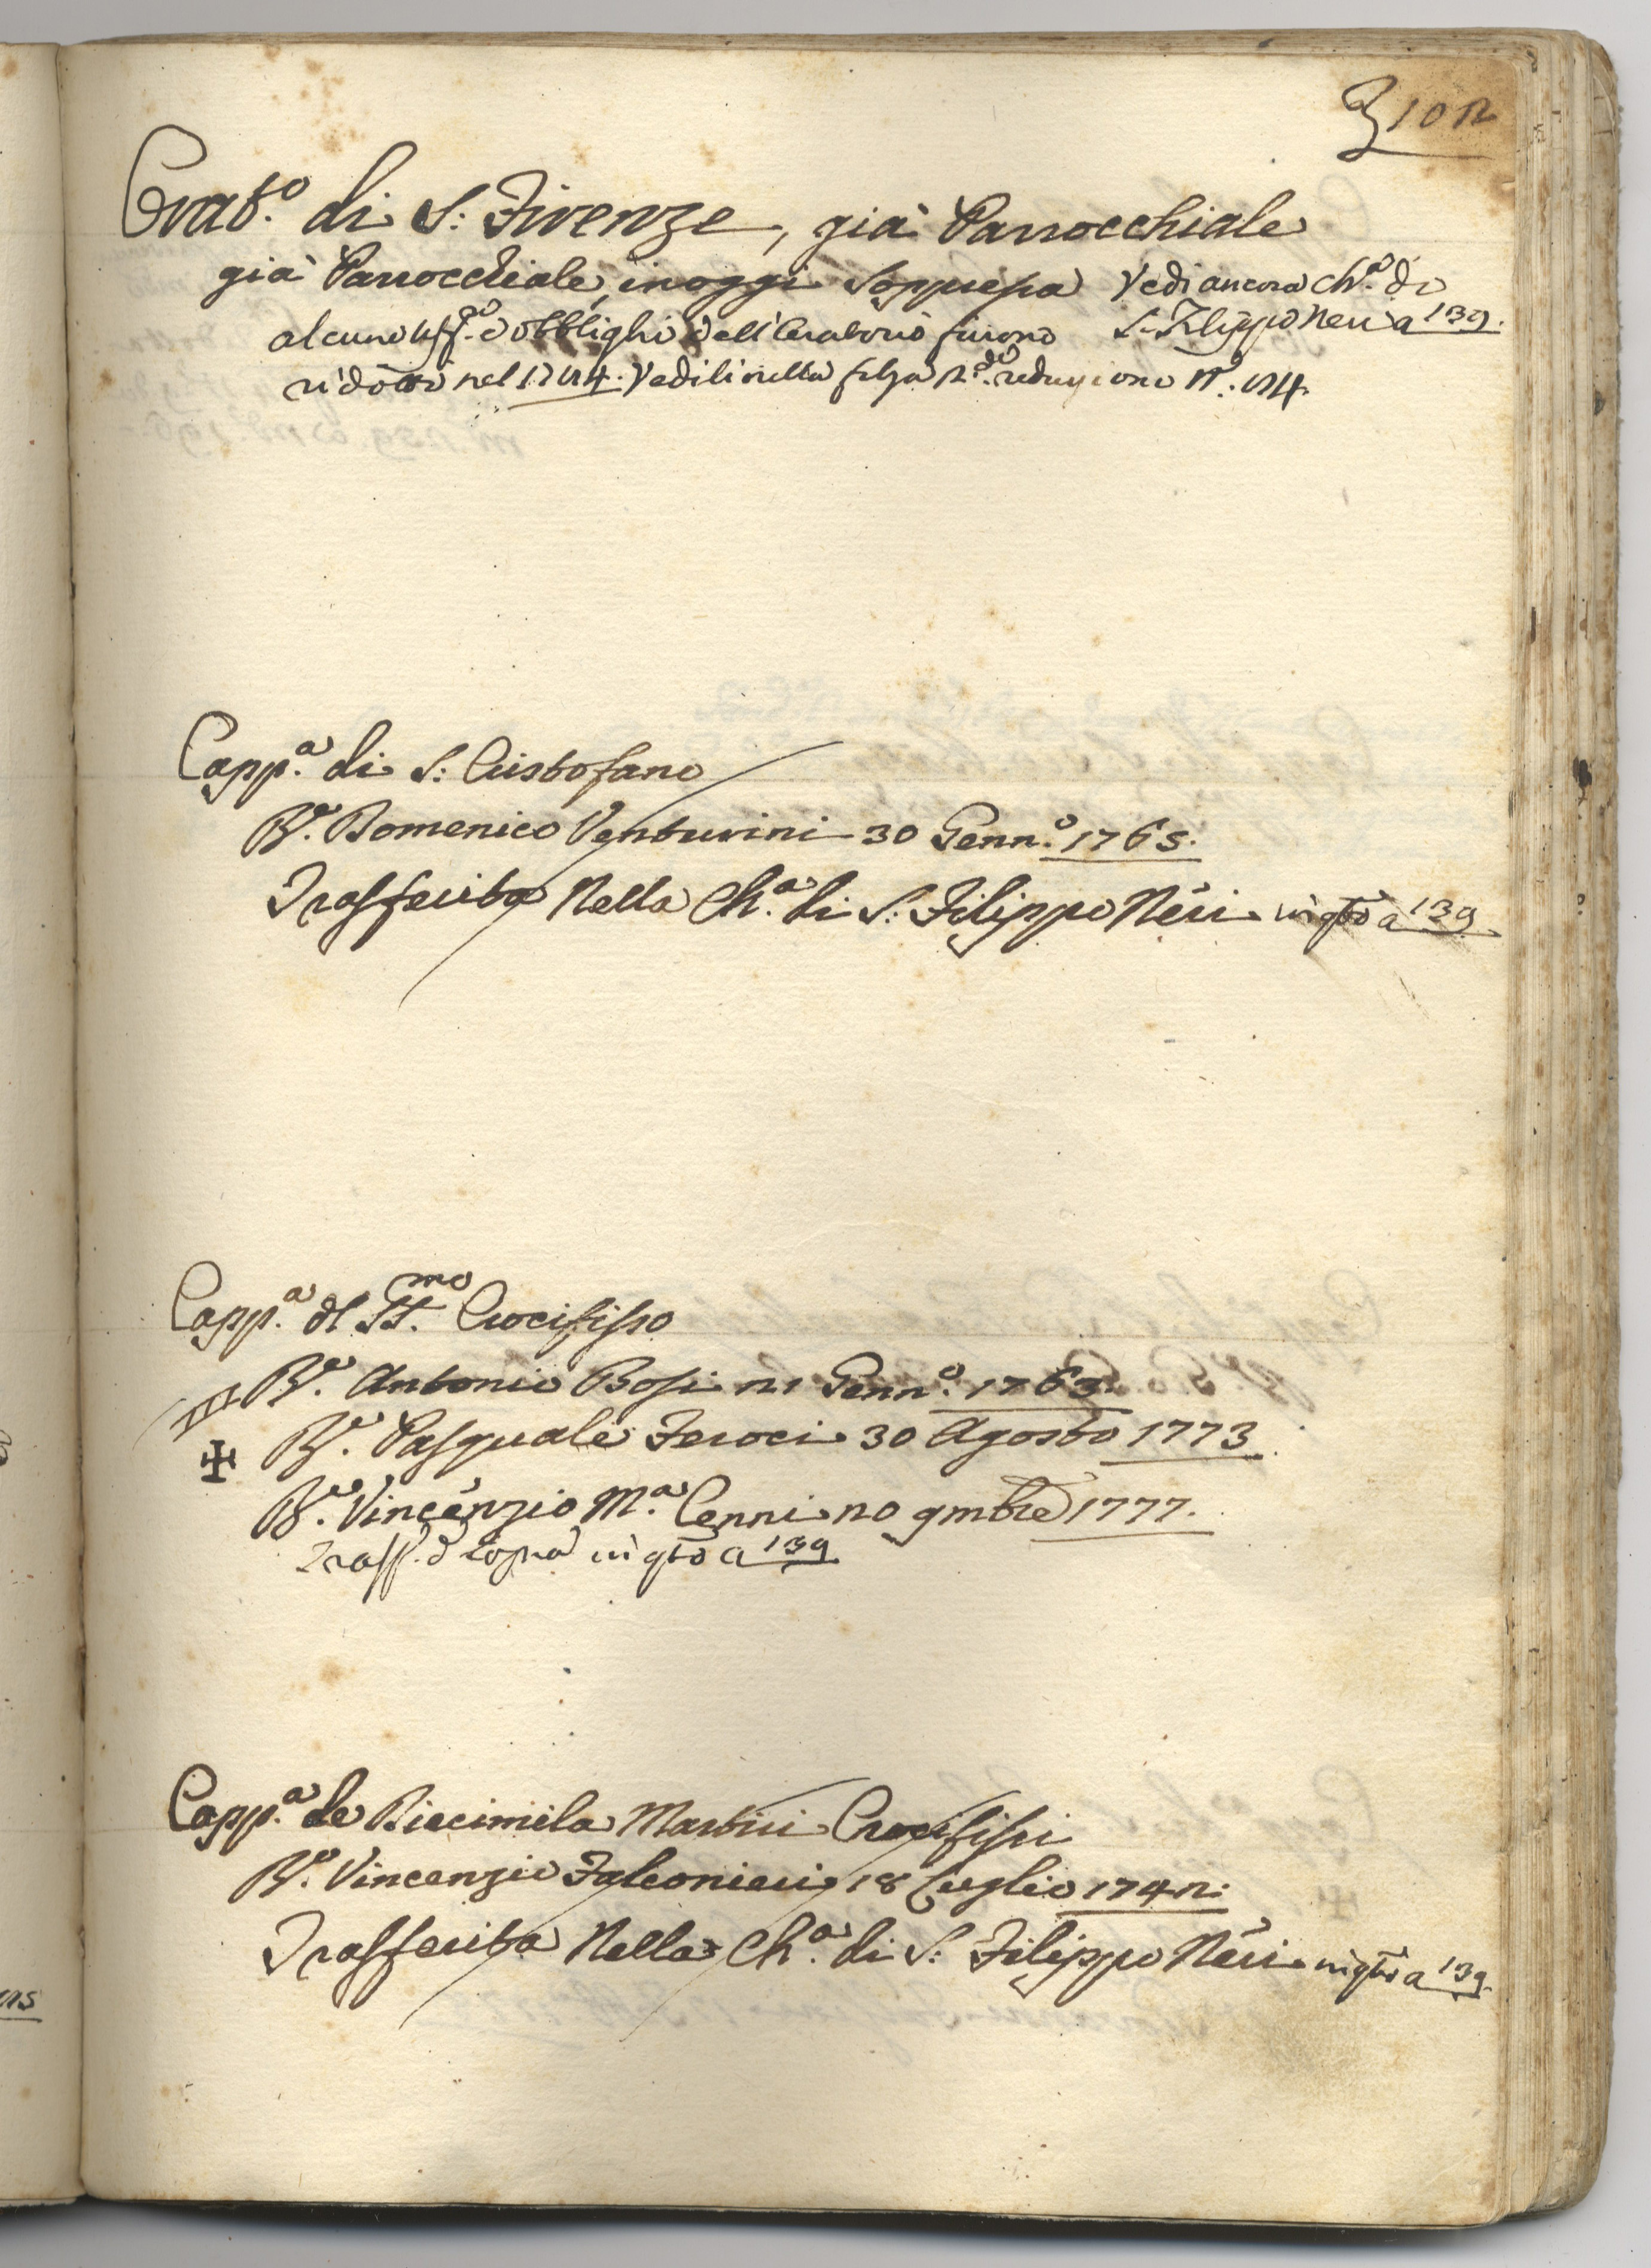 102
Orat.º di S. Firenze, già Parrocchiale
già Parrocchiale, in oggi Soppressa Vedi ancora Ch.ª di
alcune uff.re e obblighi dell'Oratorio furono S. Filippo Neri a 139.
ridotti nel 1724. Vedili nella filza 2.ª riduzione n.º 24.
Capp.ª di S: Cristofano
Domenico Venturini 30 Genn.º 1765.
Trasferita Nella Ch.ª di S: Filippo Neri in qto a 139.
Capp.ª dl SS.mo Crocifisso
Antonio Bosi 21 Genn.º 1763.
Pasquale Feroci 30 Agosto 1773
Vincenzio M.ª Cenni 20 9mbre 1777.
Trasf. d Sopra in qto a 139
Capp.ª de Diecimila Martiri Crocifissi
Vincenzio Falconieri 18 Luglio 1742:
Trasferita Nella Ch.ª di S: Filippo Neri in qto a 139.